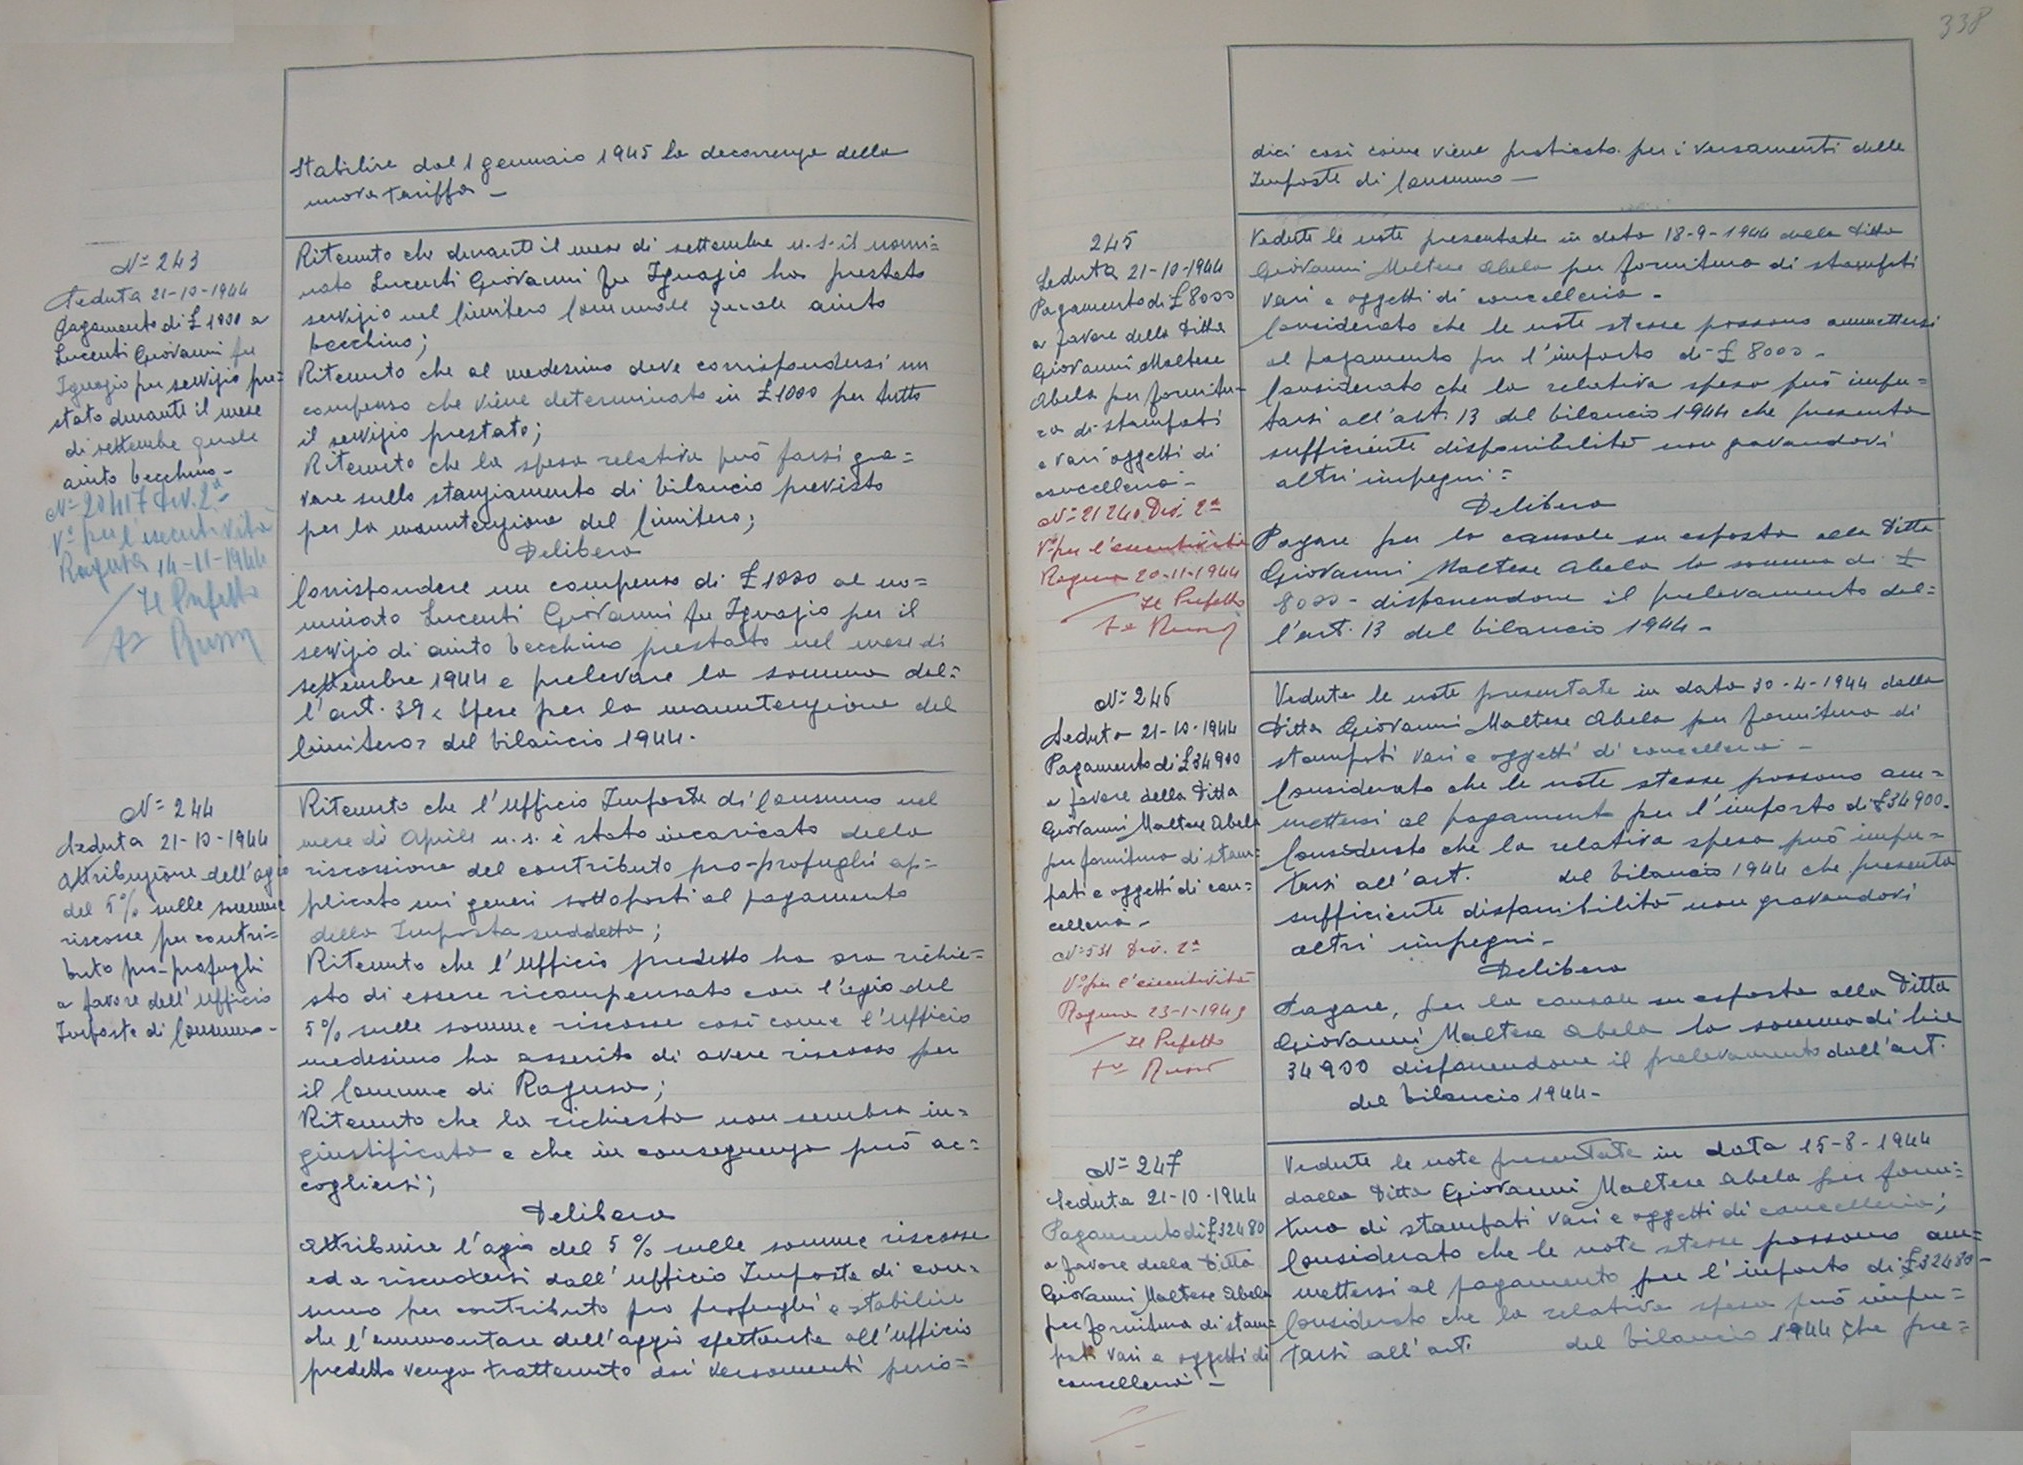 Stabilire dal 1 gennaio 1945 la decorrenza della
nuova tariffa -
N= 243
Seduta 21-10-1944
Pagamento di £ 1000 a
Lucenti Giovanni fu
Ignazio per servizio pre=
stato durante il mese
di settembre quale
aiuto becchino -
N= 20417 Div. 2ª
Vº per l'esecutività
Ragusa 14-11-1944
Il Prefetto
Ritenuto che durante il mese di settembre u.s. il nomi=
nato Lucenti Giovanni fu Ignazio ha prestato
servizio nel Cimitero Comunale quale aiuto
becchino;
Ritenuto che al medesimo deve corrispondersi un
compenso che viene determinato in £ 1000 per tutto
il servizio prestato;
Ritenuto che la spesa relativa può farsi gra=
vare sullo stanziamento di bilancio previsto
per la manutenzione del Cimitero;
Delibera
Corrispondere un compenso di £ 1000 al no=
minato Lucenti Giovanni fu Ignazio per il
servizio di aiuto becchino prestato nel mese di
settembre 1944 e prelevare la somma del=
l'art. 39 « Spese per la manutenzione del
Cimitero » del bilancio 1944.
N= 244
Seduta 21-10-1944
Attribuzione dell'agio
del 5% sulle somme
riscosse per contri=
buto pro-profughi
a favore dell'Ufficio
Imposte di Consumo -
Ritenuto che l'Ufficio Imposte di Consumo nel
mese di Aprile u.s. è stato incaricato della
riscossione del contributo pro-profughi ap=
plicato sui generi sottoposti al pagamento
della Imposta suddetta;
Ritenuto che l'Ufficio predetto ha ora richie=
sto di essere ricompensato con l'agio del
5% sulle somme riscosse così come l'Ufficio
medesimo ha asserito di avere riscosso per
il Comune di Ragusa;
Ritenuto che la richiesta non sembra in=
giustificata e che in conseguenza può ac=
cogliersi;
Delibera
Attribuire l'agio del 5% sulle somme riscosse
ed a riscuotersi dall'Ufficio Imposte di con=
sumo per contributo pro profughi e stabilire
che l'ammontare dell'aggio spettante all'Ufficio
predetto venga trattenuto dai versamenti perio=
338
dici così come viene praticato per i versamenti delle
Imposte di Consumo -
245
Seduta 21-10-1944
Pagamento di £ 8000
a favore della Ditta
Giovanni Maltese
Abela per fornitu=
ra di stampati
e vari oggetti di
cancelleria -
N= 21240 Div. 2ª
Vº per l'esecutività
Ragusa 20-11-1944
Il Prefetto
Vedute le note presentate in data 18-9-1944 dalla Ditta
Giovanni Maltese Abela per fornitura di stampati
vari e oggetti di cancelleria -
Considerato che le note stesse possono ammettersi
al pagamento per l'importo di £ 8000 -
Considerato che la relativa spesa può impu=
tarsi all'art. 13 del bilancio 1944 che presenta
sufficiente disponibilità non gravandovi
altri impegni =
Delibera
Pagare per la causale su esposta alla Ditta
Giovanni Maltese Abela la somma di £
8000 - disponendone il prelevamento del=
l'art. 13 del bilancio 1944 -
N= 246
Seduta 21-10-1944
Pagamento di £ 34900
a favore della Ditta
Giovanni Maltese Abela
per fornitura di stam=
pati e oggetti di can=
celleria -
N= 531 Div. 2ª
Vº per l'esecutività
Ragusa 23-1-1945
Il Prefetto
Vedute le note presentate in data 30-4-1944 dalla
Ditta Giovanni Maltese Abela per fornitura di
stampati vari e oggetti di cancelleria -
Considerato che le note stesse possono am=
mettersi al pagamento per l'importo di £ 34900 -
Considerato che la relativa spesa può impu=
tarsi all'art. del bilancio 1944 che presenta
sufficiente disponibilità non gravandovi
altri impegni -
Delibera
Pagare, per la causale su esposta alla Ditta
Giovanni Maltese Abela la somma di lire
34900 disponendone il prelevamento dall'art.
del bilancio 1944 -
N= 247
Seduta 21-10-1944
Pagamento di £ 32480
a favore della Ditta
Giovanni Maltese Abela
per fornitura di stam=
pati vari e oggetti di
cancelleria -
Vedute le note presentate in data 15-8-1944
dalla Ditta Giovanni Maltese Abela per forni=
tura di stampati vari e oggetti di cancelleria;
Considerato che le note stesse possono am=
mettersi al pagamento per l'importo di £ 32480 -
Considerato che la relativa spesa può impu=
tarsi all'art. del bilancio 1944 che pre=